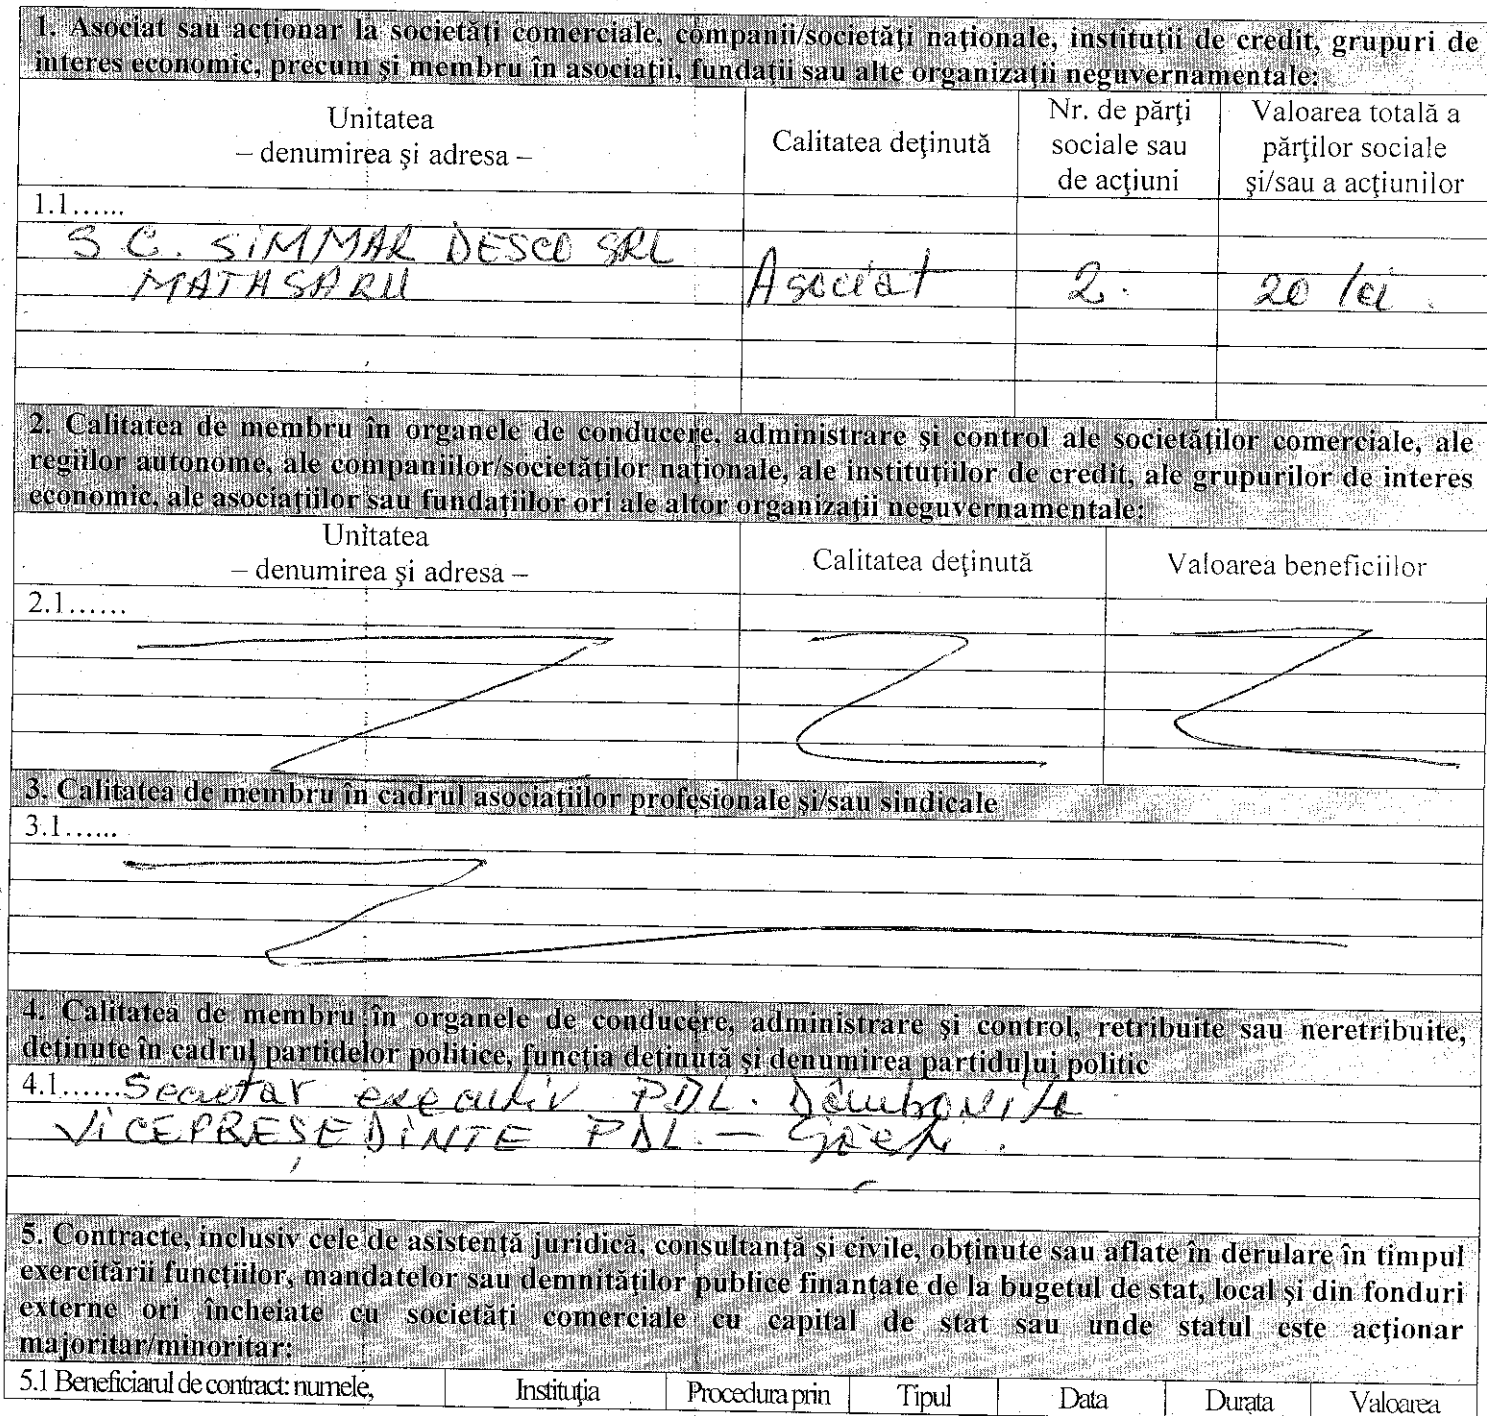 1. Asociat sau acționar la societăți comerciale, companii/societăți naționale, instituții de credit, grupuri de
interes economic, precum și membru în asociații, fundații sau alte organizații neguvernamentale:
Unitatea
– denumirea și adresa –
Calitatea deținută
Nr. de părți
sociale sau
de acțiuni
Valoarea totală a
părților sociale
și/sau a acțiunilor
1.1......
S C. SIMMAR DESCO SRL
MATASARU
Asociat
2.
20 lei.
2. Calitatea de membru în organele de conducere, administrare și control ale societăților comerciale, ale
regiilor autonome, ale companiilor/societăților naționale, ale instituțiilor de credit, ale grupurilor de interes
economic, ale asociațiilor sau fundațiilor ori ale altor organizații neguvernamentale:
Unitatea
– denumirea și adresa –
Calitatea deținută
Valoarea beneficiilor
2.1......
3. Calitatea de membru în cadrul asociațiilor profesionale și/sau sindicale
3.1......
4. Calitatea de membru în organele de conducere, administrare și control, retribuite sau neretribuite,
deținute în cadrul partidelor politice, funcția deținută și denumirea partidului politic
4.1......Secretar executiv PDL. Dâmbovița
VICEPREȘEDINTE PDL. –
5. Contracte, inclusiv cele de asistență juridică, consultanță și civile, obținute sau aflate în derulare în timpul
exercitării funcțiilor, mandatelor sau demnităților publice finanțate de la bugetul de stat, local și din fonduri
externe ori încheiate cu societăți comerciale cu capital de stat sau unde statul este acționar
majoritar/minoritar:
5.1 Beneficiarul de contract: numele,
Instituția
Procedura prin
Tipul
Data
Durata
Valoarea